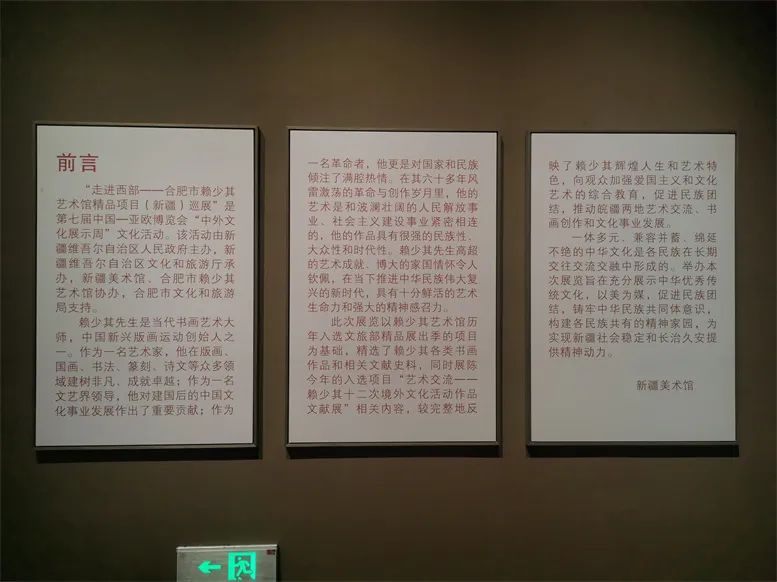 前言
“走进西部——合肥市赖少其
艺术馆精品项目（新疆）巡展”是
第七届中国—亚欧博览会“中外文
化展示周”文化活动。该活动由新
疆维吾尔自治区人民政府主办，新
疆维吾尔自治区文化和旅游厅承
办，新疆美术馆、合肥市赖少其
艺术馆协办，合肥市文化和旅游
局支持。
赖少其先生是当代书画艺术大
师，中国新兴版画运动创始人之
一。作为一名艺术家，他在版画、
国画、书法、篆刻、诗文等众多领
域建树非凡、成就卓越；作为一名
文艺界领导，他对建国后的中国文
化事业发展作出了重要贡献；作为
一名革命者，他更是对国家和民族
倾注了满腔热情。在其六十多年风
雷激荡的革命与创作岁月里，他的
艺术是和波澜壮阔的人民解放事
业、社会主义建设事业紧密相连
的，他的作品具有很强的民族性、
大众性和时代性。赖少其先生高超
的艺术成就、博大的家国情怀令人
钦佩，在当下推进中华民族伟大复
兴的新时代，具有十分鲜活的艺术
生命力和强大的精神感召力。
此次展览以赖少其艺术馆历
年入选文旅部精品展出季的项目
为基础，精选了赖少其各类书画
作品和相关文献史料，同时展陈
今年的入选项目“艺术交流——
赖少其十二次境外文化活动作品
文献展”相关内容，较完整地反
映了赖少其辉煌人生和艺术特
色，向观众加强爱国主义和文化
艺术的综合教育，促进民族团
结，推动皖疆两地艺术交流、书
画创作和文化事业发展。
一体多元、兼容并蓄、绵延
不绝的中华文化是各民族在长期
交往交流交融中形成的。举办本
次展览旨在充分展示中华优秀传
统文化，以美为媒，促进民族团
结，铸牢中华民族共同体意识，
构建各民族共有的精神家园，为
实现新疆社会稳定和长治久安提
供精神动力。
新疆美术馆